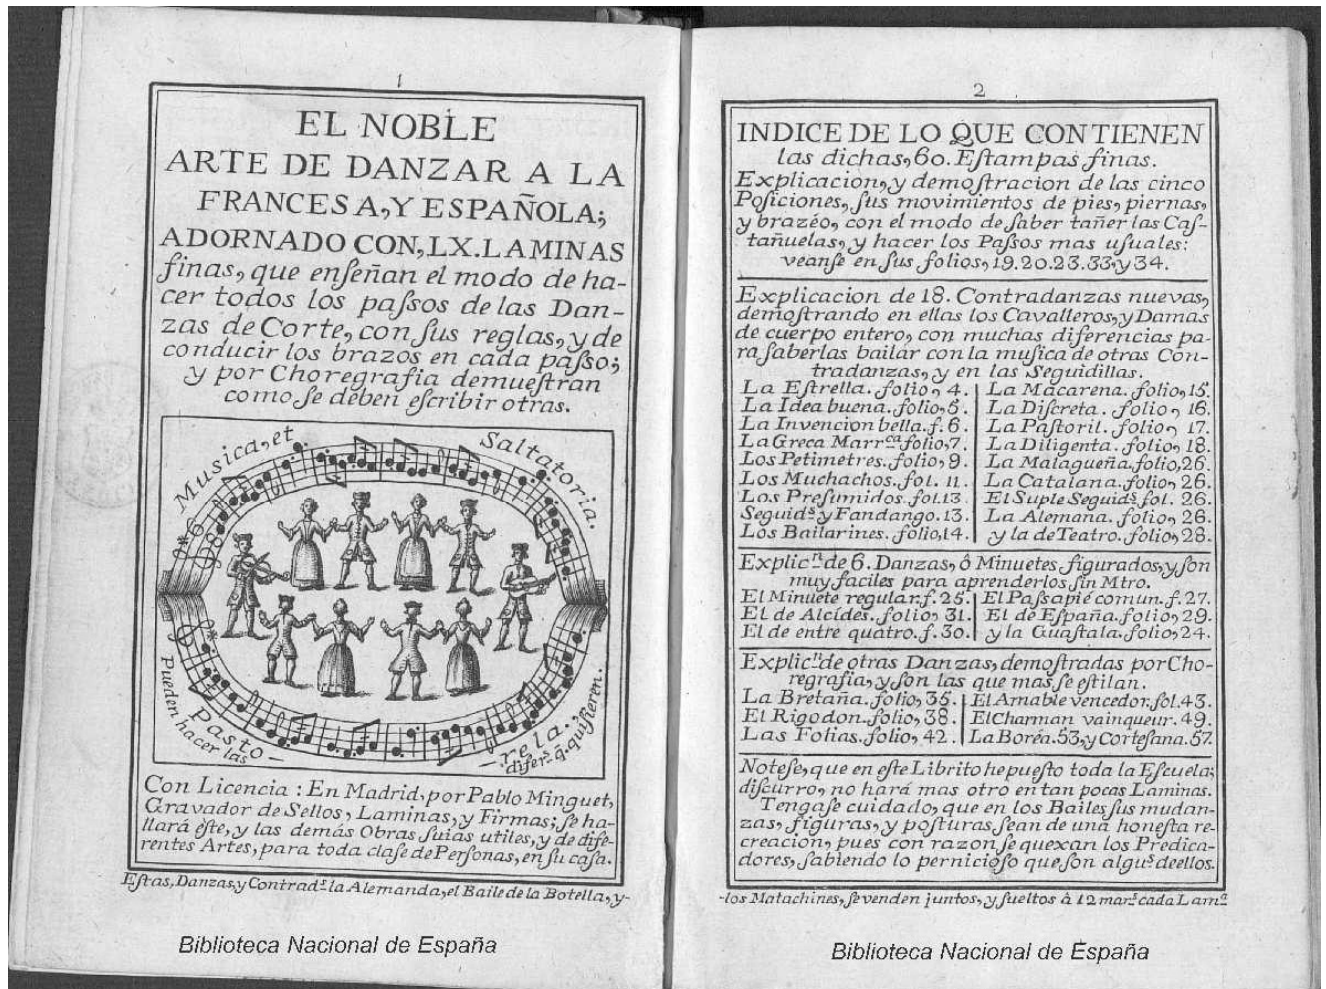 1
EL NOBLE
ARTE DE DANZAR A LA
FRANCESA, Y ESPAÑOLA;
ADORNADO CON, LX. LAMINAS
finas, que enſeñan el modo de ha-
cer todos los paſsos de las Dan-
zas de Corte, con ſus reglas, y de
conducir los brazos en cada paſso;
y por Choregrafia demueſtran
como ſe deben eſcribir otras.
Musica, et Saltatoria.
Pasto - - rela.
Pueden hacer las difer.s q. quiſieren.
Con Licencia: En Madrid, por Pablo Minguet,
Gravador de Sellos, Laminas, y Firmas; ſe ha-
llará èſte, y las demás Obras ſuias utiles, y de dife-
rentes Artes, para toda claſe de Perſonas, en ſu caſa.
Eſtas, Danzas, y Contrad.s la Alemanda, el Baile de la Botella, y-
Biblioteca Nacional de España
2
INDICE DE LO QUE CONTIENEN
las dichas, 60. Eſtampas finas.
Explicacion, y demoſtracion de las cinco
Poſiciones, ſus movimientos de pies, piernas,
y brazéo, con el modo de ſaber tañer las Caſ-
tañuelas, y hacer los Paſsos mas uſuales:
veanſe en ſus folios, 19. 20. 23. 33. y 34.
Explicacion de 18. Contradanzas nuevas,
demoſtrando en ellas los Cavalleros, y Damas
de cuerpo entero, con muchas diferencias pa-
ra ſaberlas bailar con la muſica de otras Con-
tradanzas, y en las Seguidillas.
La Eſtrella. folio, 4.
La Idea buena. folio, 5.
La Invencion bella. f. 6.
La Greca Marr.ca folio, 7.
Los Petimetres. folio, 9.
Los Muchachos. fol. 11.
Los Preſumidos. fol. 13.
Seguid.s y Fandango. 13.
Los Bailarines. folio, 14.
La Macarena. folio, 15.
La Diſcreta. folio, 16.
La Paſtoril. folio, 17.
La Diligenta. folio, 18.
La Malagueña. folio, 26.
La Catalana. folio, 26.
El Suple Seguid.s fol. 26.
La Alemana. folio, 26.
y la de Teatro. folio, 28.
Explic.n de 6. Danzas, ô Minuetes figurados, y ſon
muy faciles para aprenderlos ſin Mtro.
El Minuete regular. f. 25.
El de Alcídes. folio, 31.
El de entre quatro. f. 30.
El Paſsapié comun. f. 27.
El de Eſpaña. folio, 29.
y la Guaſtala. folio, 24.
Explic.n de otras Danzas, demoſtradas por Cho-
regrafia, y ſon las que mas ſe eſtilan.
La Bretaña. folio, 35.
El Rigodon. folio, 38.
Las Folias. folio, 42.
El Amable vencedor. fol. 43.
El Charman vainqueur. 49.
La Boréa. 53, y Corteſana. 57.
Noteſe, que en eſte Librito he pueſto toda la Eſcuela;
diſcurro, no hará mas otro en tan pocas Laminas.
Tengaſe cuidado, que en los Bailes ſus mudan-
zas, figuras, y poſturas ſean de una honeſta re-
creacion, pues con razon ſe quexan los Predica-
dores, ſabiendo lo pernicioſo que ſon algu.s de ellos.
-los Matachines, ſe venden juntos, y ſueltos â 12 mar.s cada Lam.a
Biblioteca Nacional de España